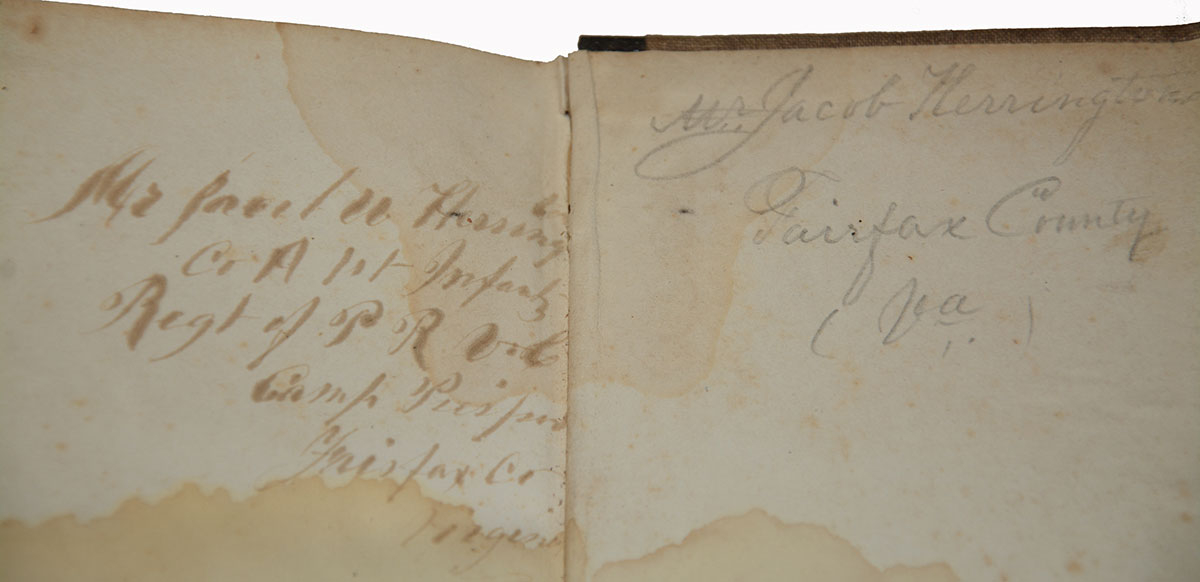 Mr Jacob W Herring
Co A 1st Infant
Regt of P R V C
Camp Pierpon
Fairfax Co
Virgini
Mr. Jacob Herrington
Fairfax County
( Va )